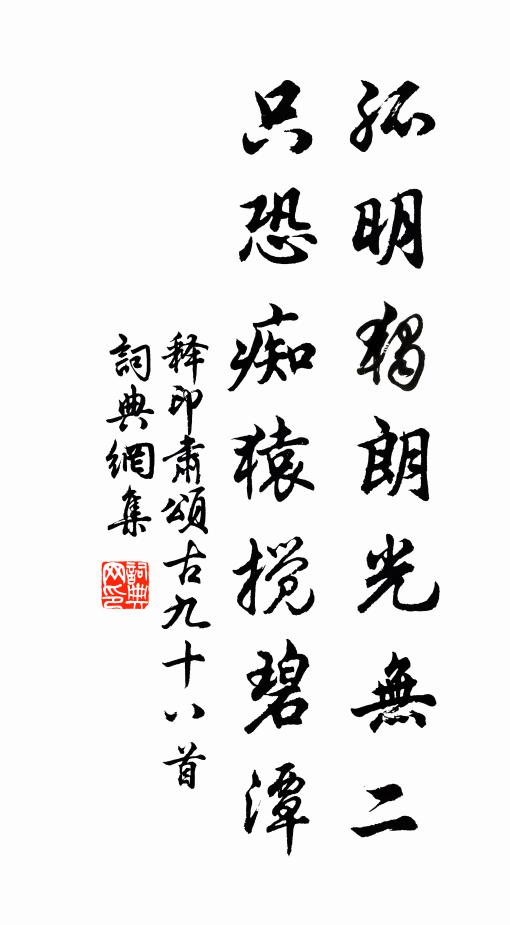 孤明獨朗光無二
只恐痴猿攪碧潭
释印肅頌古九十八首
詞典網集
詞典网印